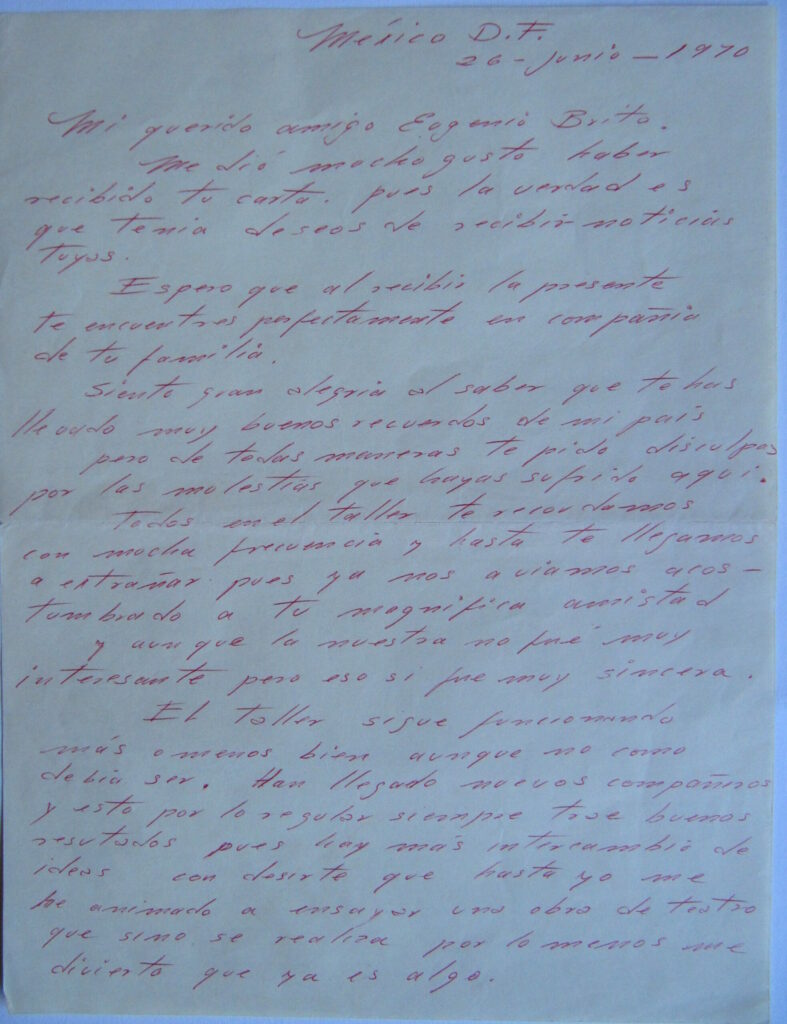 México D.F.
26-Junio-1970
Mi querido amigo Eugenio Brito.
Me dió mucho gusto haber
recibido tu carta. pues la verdad es
que tenia deseos de recibir noticias
tuyas.
Espero que al recibir la presente
te encuentres perfectamente en compañia
de tu familia.
Siento gran alegria al saber que te has
llevado muy buenos recuerdos de mi país
pero de todas maneras te pido disculpas
por las molestias que hayas sufrido aqui.
Todos en el taller te recordamos
con mucha frecuencia y hasta te llegamos
a extrañar pues ya nos aviamos acos-
tumbrado a tu magnifica amistad
y aunque la nuestra no fué muy
interesante pero eso si fue muy sincera.
El taller sigue funcionando
más o menos bien aunque no como
debia ser. Han llegado nuevos compañeros
y esto por lo regular siempre trae buenos
resutados pues hay más intercambio de
ideas con desirte que hasta yo me
he animado a ensayar una obra de teatro
que sino se realiza por lo menos me
divierto que ya es algo.